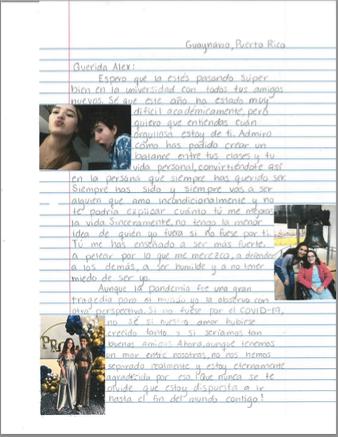 Guaynabo, Puerto Rico
Querida Alex:
Espero que la estés pasando súper
bien en la universidad con todos tus amigos
nuevos. Sé que este año ha estado muy
difícil académicamente, pero
quiero que entiendas cuán
orgullosa estoy de ti. Admiro
cómo has podido crear un
balance entre tus clases y tu
vida personal, convirtiéndote así
en la persona que siempre has querido ser.
Siempre has sido y siempre vas a ser
alguien que amo incondicionalmente y no
te podría explicar cuánto tú me mejoras
la vida. Sinceramente, no tengo la menor
idea de quién yo fuera si no fuese por ti.
Tú me has enseñado a ser más fuerte,
a pelear por lo que me merezco, a defender
a los demás, a ser humilde y a no tener
miedo de ser yo.
Aunque la pandemia fue una gran
tragedia para el mundo yo la observo con
otra perspectiva. Si no fuese por el COVID-19,
no sé si nuestro amor hubiese
crecido tanto y si seríamos tan
buenas amigas. Ahora, aunque tenemos
un mar entre nosotros, no nos hemos
separado realmente y estoy eternamente
agradecida por eso. Que nunca se te
olvide que estoy dispuesta a ir
hasta el fin del mundo contigo!